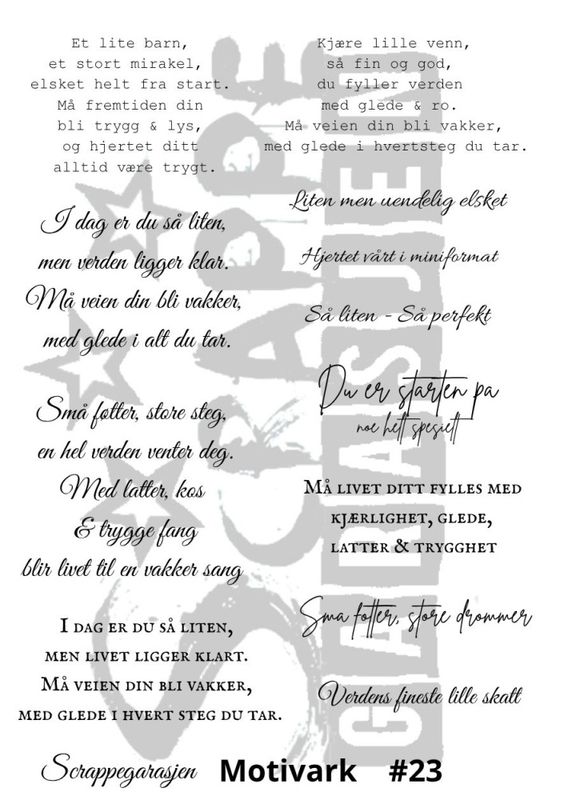 Et lite barn,
et stort mirakel,
elsket helt fra start.
Må fremtiden din
bli trygg & lys,
og hjertet ditt
alltid være trygt.
Kjære lille venn,
så fin og god,
du fyller verden
med glede & ro.
Må veien din bli vakker,
med glede i hvertsteg du tar.
I dag er du så liten,
men verden ligger klar.
Må veien din bli vakker,
med glede i alt du tar.
Små føtter, store steg,
en hel verden venter deg.
Med latter, kos
& trygge fang
blir livet til en vakker sang
I dag er du så liten,
men livet ligger klart.
Må veien din bli vakker,
med glede i hvert steg du tar.
Liten men uendelig elsket
Hjertet vårt i miniformat
Så liten - Så perfekt
Du er starten pa
noe helt spesielt
Må livet ditt fylles med
kjærlighet, glede,
latter & trygghet
Sma fotter, store drommer
Verdens fineste lille skatt
SCRAPPE
GARASJEN
Scrappegarasjen Motivark #23